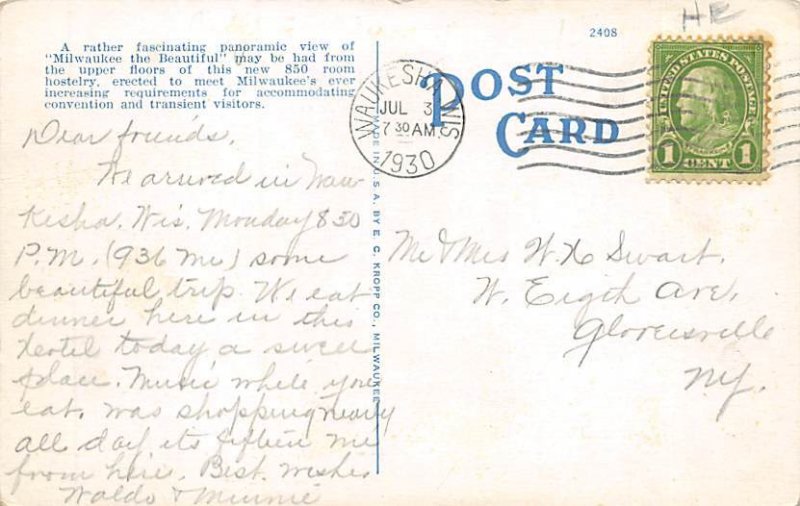 A rather fascinating panoramic view of
"Milwaukee the Beautiful" may be had from
the upper floors of this new 850 room
hostelry, erected to meet Milwaukee's ever
increasing requirements for accommodating
convention and transient visitors.
Dear friends,
We arrived in Wau
Kesha. Wis. Monday 8 30
P.M. (936 Mi) some
beautiful trip. We eat
dinner here in this
Hotel today a swell
place. Music while you
eat. was shopping nearly
all day its fifteen mi
from here. Best wishes
Waldo & Minnie
MADE IN U.S.A. BY E. C. KROPP CO., MILWAUKEE
HE
2408
POST
CARD
WAUKESHA WIS
JUL 3
7 30 AM
1930
UNITED STATES POSTAGE
1 CENT 1
Mr & Mrs W. H Swart.
W. Eigth Ave.
Gloversville
N.Y.